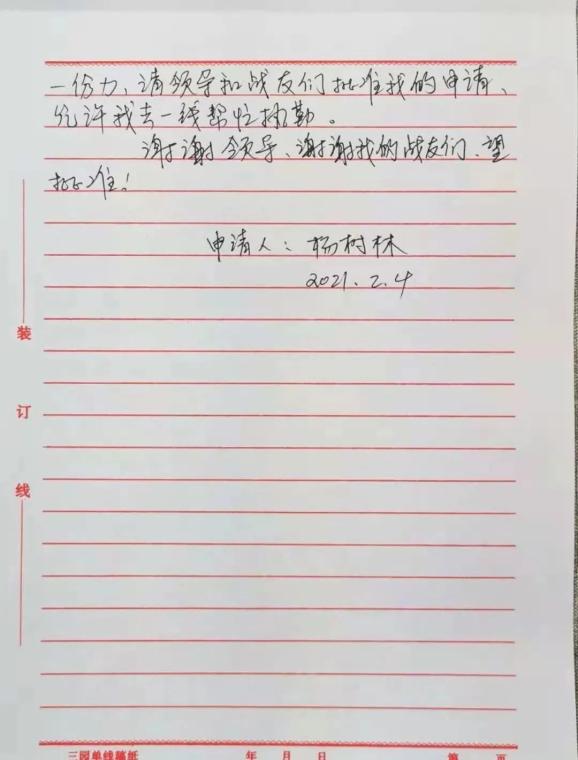 一份力，请领导和战友们批准我的申请、
允许我去一线帮忙执勤。
谢谢领导、谢谢我的战友们、望
批准！
申请人：杨树林
2021.2.4
装
订
线
三园单线稿纸 年 月 日 第 页